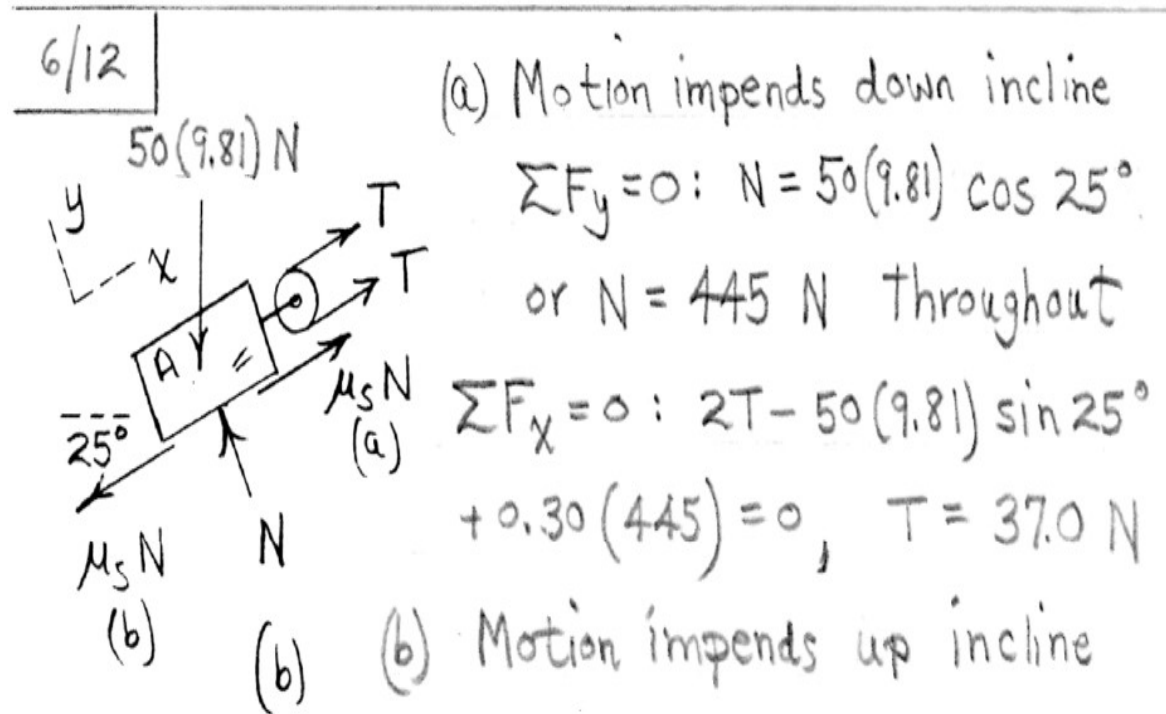 6/12
50(9.81) N
y
x
T
T
A
μsN
(a)
25°
μsN
(b)
N
(b)
(a) Motion impends down incline
ΣFy = 0: N = 50(9.81) cos 25°
or N = 445 N throughout
ΣFx = 0 : 2T - 50(9.81) sin 25°
+ 0.30 (445) = 0, T = 37.0 N
(b) Motion impends up incline